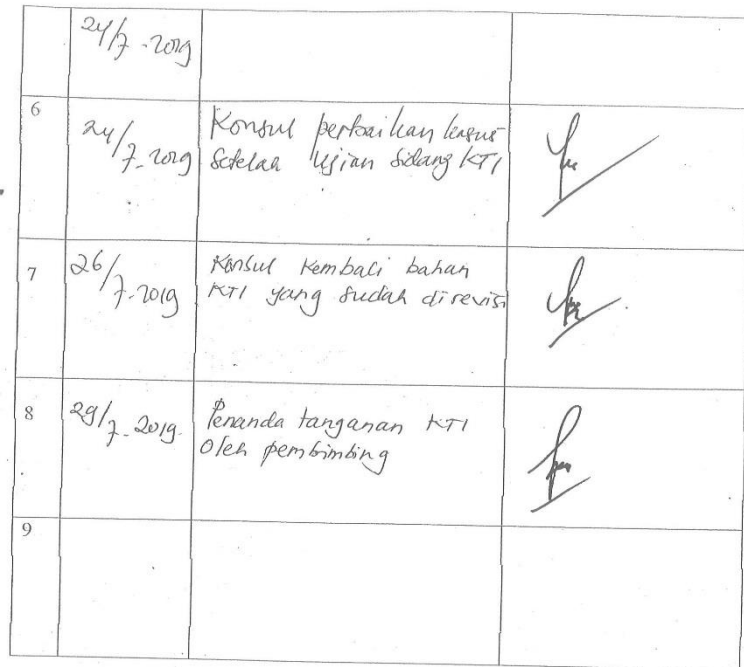 24/7-2019
6
24/7-2019
Konsul perbaikan kasus
Setelah Ujian Sidang KTI
7
26/7-2019
Konsul Kembali bahan
KTI yang sudah direvisi
8
29/7-2019.
Penanda tanganan KTI
Oleh pembimbing
9